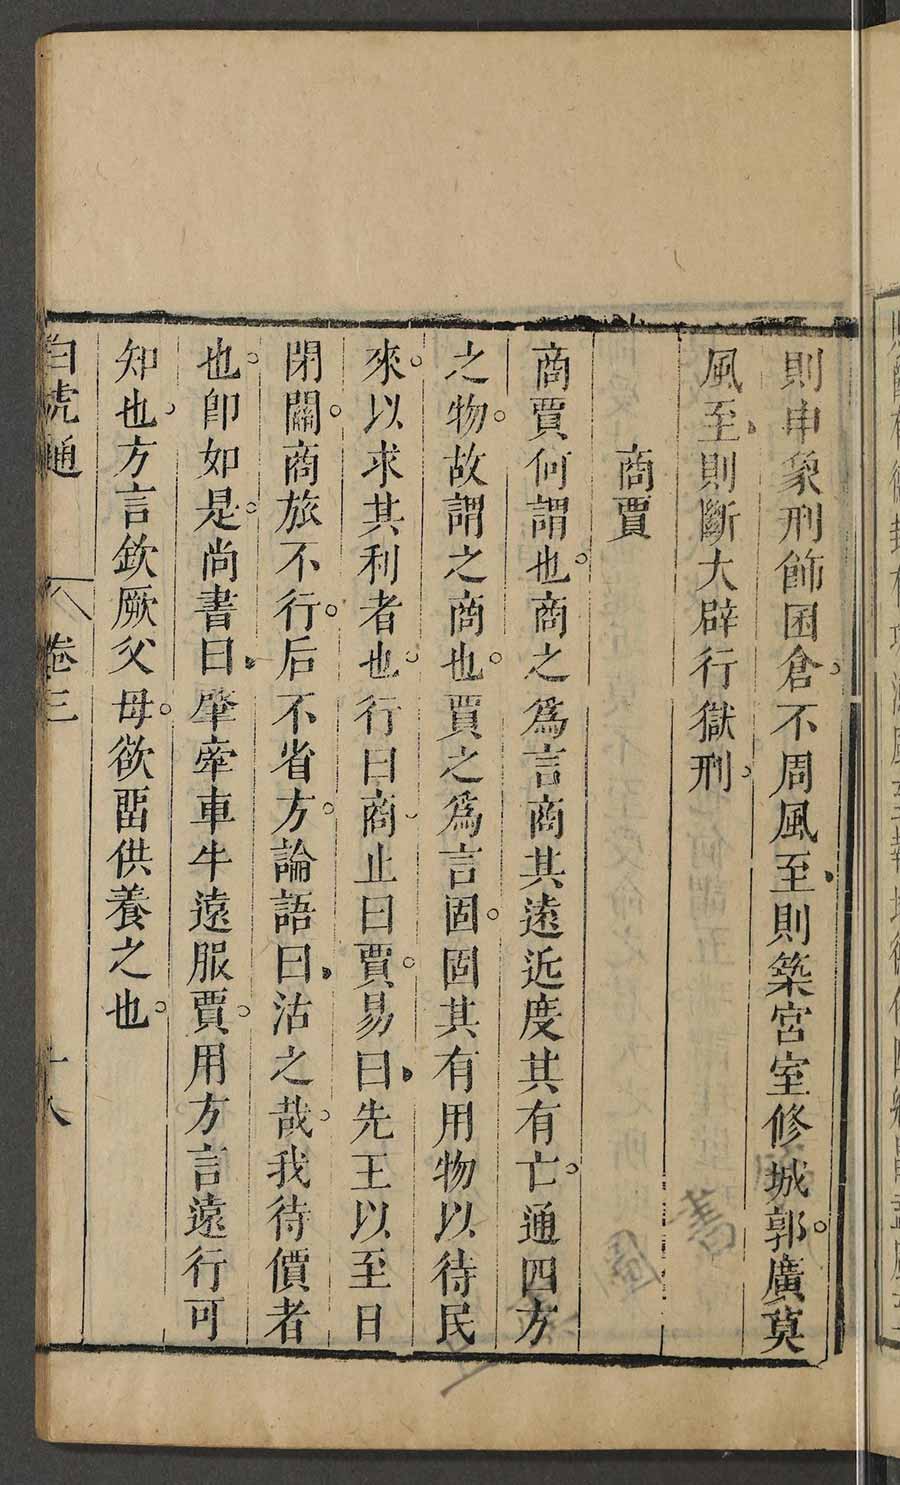 則申象刑飾囷倉。不周風至、則築宮室修城郭。廣莫
風至、則斷大辟行獄刑。
商賈
商賈何謂也。商之爲言商其遠近度其有亡。通四方
之物。故謂之商也。賈之爲言固。固其有用物以待民
來。以求其利者也。行曰商止曰賈。易曰、先王以至日
閉關。商旅不行。后不省方。論語曰、沽之哉。我待價者
也。卽如是。尚書曰、肇牽車牛遠服賈。用方言遠行可
知也、方言欽厥父母。欲畱供養之也。
白虎通
卷三
十八